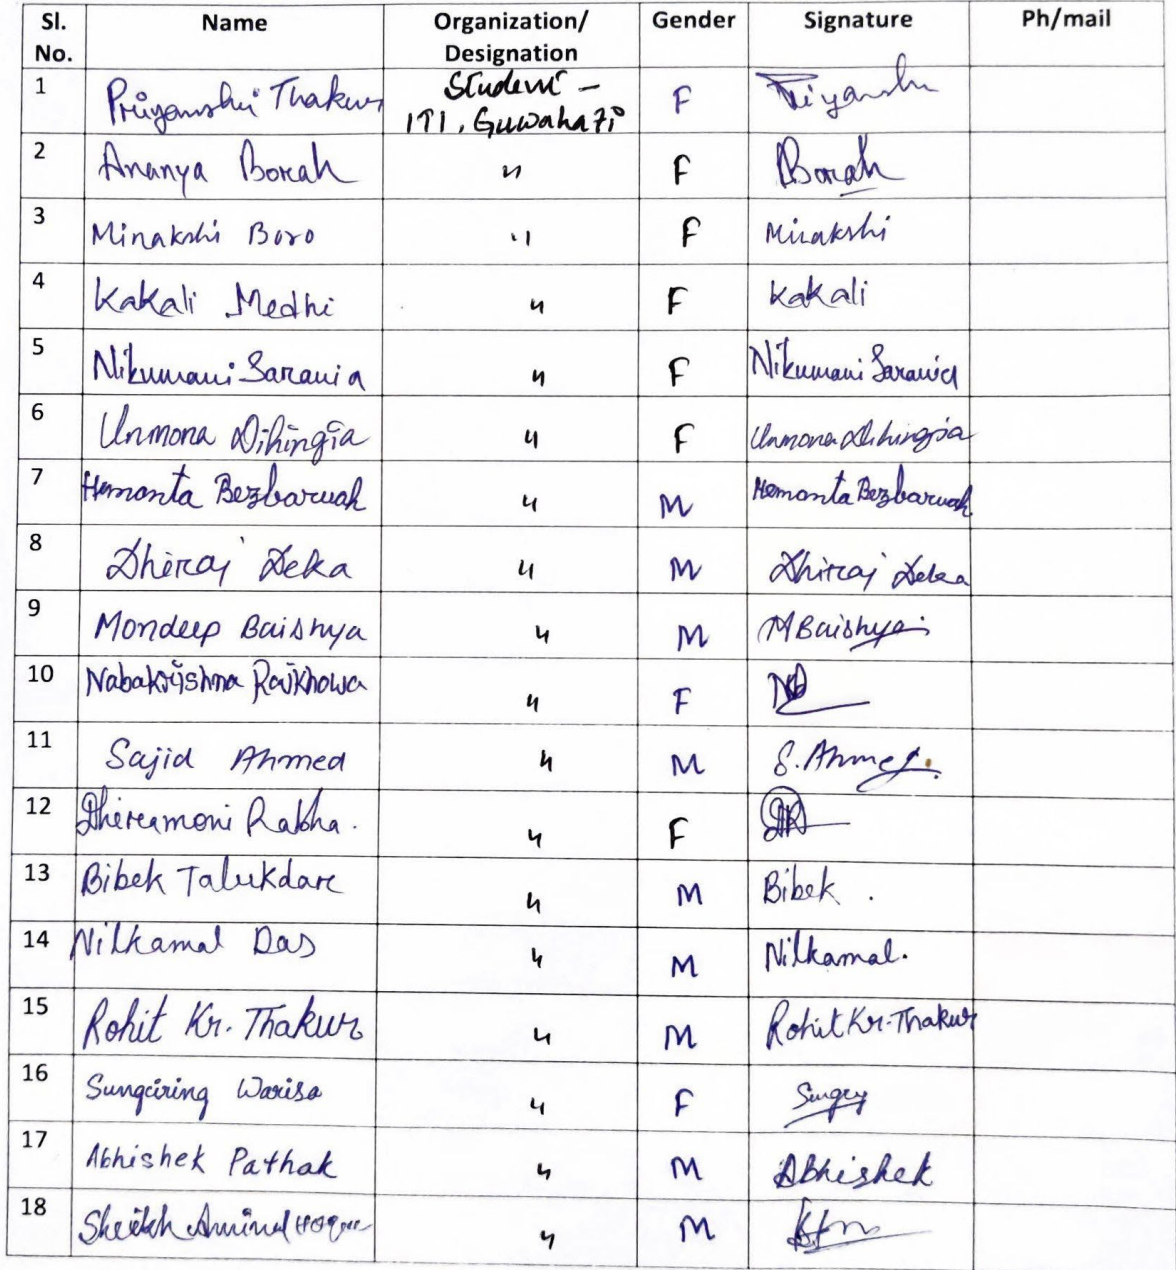 Sl. No. Name Organization/ Designation Gender Signature Ph/mail
1 Priyanshi Thakur Student – ITI, Guwahati F Priyanshi
2 Ananya Borah " F Borah
3 Minakshi Boro " F Minakshi
4 Kakali Medhi " F Kakali
5 Nikumani Sarania " F Nikumani Sarania
6 Unmona Dihingia " F Unmona Dihingia
7 Hemanta Bezbaruah " M Hemanta Bezbaruah
8 Dhiraj Deka " M Dhiraj Deka
9 Mondeep Baishya " M MBaishya
10 Nabakrishna Rajkhowa " F
11 Sajid Ahmed " M S. Ahmed.
12 Rabha. " F DR
13 Bibek Talukdar " M Bibek .
14 Nilkamal Das " M Nilkamal.
15 Rohit Kr. Thakur " M Rohit Kr. Thakur
16 Warisa " F
17 Abhishek Pathak " M Abhishek
18 Sheikh Aminul Hoque " M